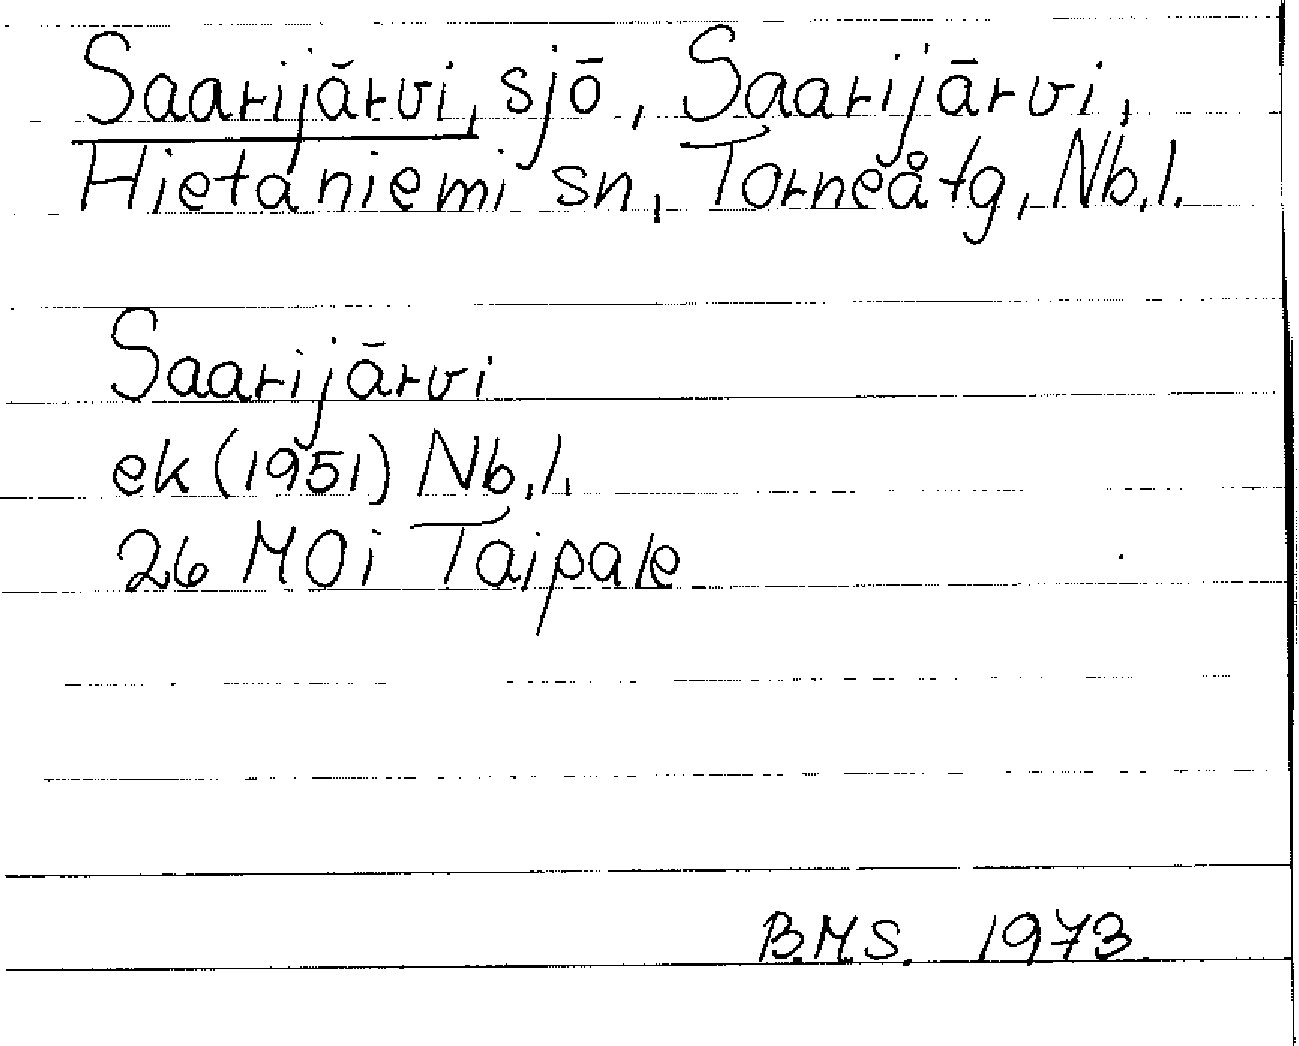 Saarijärvi, sjö, Saarijärvi,
Hietaniemi sn, Torneå tg, Nb.l.
Saarijärvi
ek (1951) Nb.l.
26 M 0i Taipale
B.M.S. 1973.